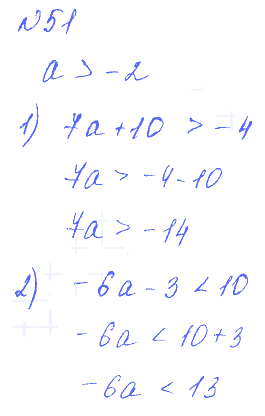 №51
a > -2
1) 7a + 10 > -4
7a > -4 - 10
7a > -14
2) -6a - 3 < 10
-6a < 10 + 3
-6a < 13